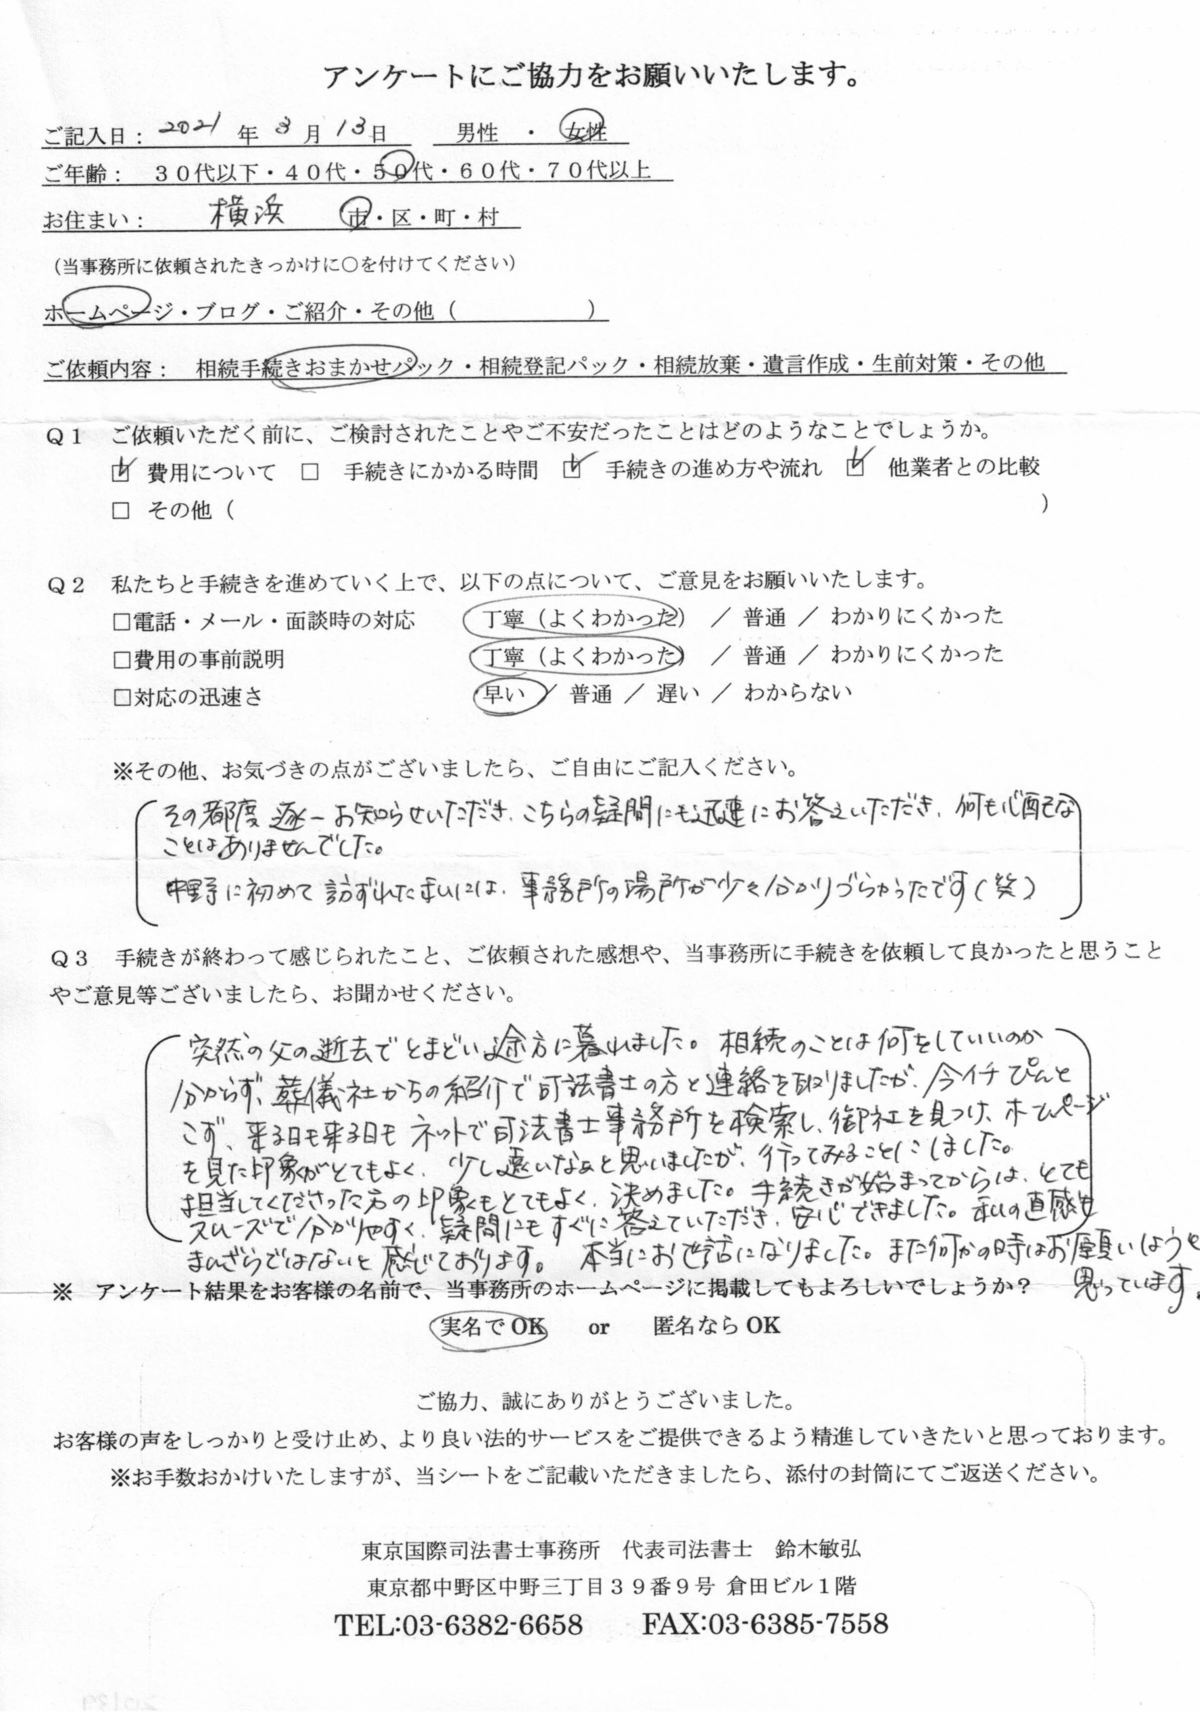 アンケートにご協力をお願いいたします。
ご記入日： 2021 年 3 月 13 日　男性 ・ 女性
ご年齢：　３０代以下・４０代・５０代・６０代・７０代以上
お住まい：　横浜　市・区・町・村
（当事務所に依頼されたきっかけに○を付けてください）
ホームページ・ブログ・ご紹介・その他（　　　　　　）
ご依頼内容：　相続手続きおまかせパック・相続登記パック・相続放棄・遺言作成・生前対策・その他
Ｑ１　ご依頼いただく前に、ご検討されたことやご不安だったことはどのようなことでしょうか。
☑ 費用について　□　手続きにかかる時間　☑　手続きの進め方や流れ　☑　他業者との比較
□ その他（　　　　　　　　　　　　　　　　　　　　）
Ｑ２　私たちと手続きを進めていく上で、以下の点について、ご意見をお願いいたします。
□電話・メール・面談時の対応　　丁寧（よくわかった）　／ 普通 ／ わかりにくかった
□費用の事前説明　　丁寧（よくわかった）　／ 普通 ／ わかりにくかった
□対応の迅速さ　　早い ／ 普通 ／ 遅い ／ わからない
※その他、お気づきの点がございましたら、ご自由にご記入ください。
その都度逐一お知らせいただき、こちらの疑問にも迅速にお答えいただき、何も心配な
ことはありませんでした。
中野に初めて訪ずれた私には、事務所の場所が少々分かりづらかったです（笑）
Ｑ３　手続きが終わって感じられたこと、ご依頼された感想や、当事務所に手続きを依頼して良かったと思うこと
やご意見等ございましたら、お聞かせください。
突然の父の逝去でとまどい途方に暮れました。相続のことは何をしていいのか
分からず、葬儀社からの紹介で司法書士の方と連絡を取りましたが、今イチぴんと
こず、来る日も来る日もネットで司法書士事務所を検索し、御社を見つけ、ホームページ
を見た印象がとてもよく、少し遠いなぁと思いましたが、行ってみることにしました。
担当してくださった方の印象もとてもよく、決めました。手続きが始まってからは、とても
スムーズで分かりやすく、疑問にもすぐに答えていただき、安心できました。私の直感も
まんざらではないと感じております。　本当にお世話になりました。また何かの時はお願いしようと
思っています。
※　アンケート結果をお客様の名前で、当事務所のホームページに掲載してもよろしいでしょうか？
実名でOK　　or　　匿名ならOK
ご協力、誠にありがとうございました。
お客様の声をしっかりと受け止め、より良い法的サービスをご提供できるよう精進していきたいと思っております。
※お手数おかけいたしますが、当シートをご記載いただきましたら、添付の封筒にてご返送ください。
東京国際司法書士事務所　代表司法書士　鈴木敏弘
東京都中野区中野三丁目３９番９号 倉田ビル１階
TEL:03-6382-6658　　FAX:03-6385-7558